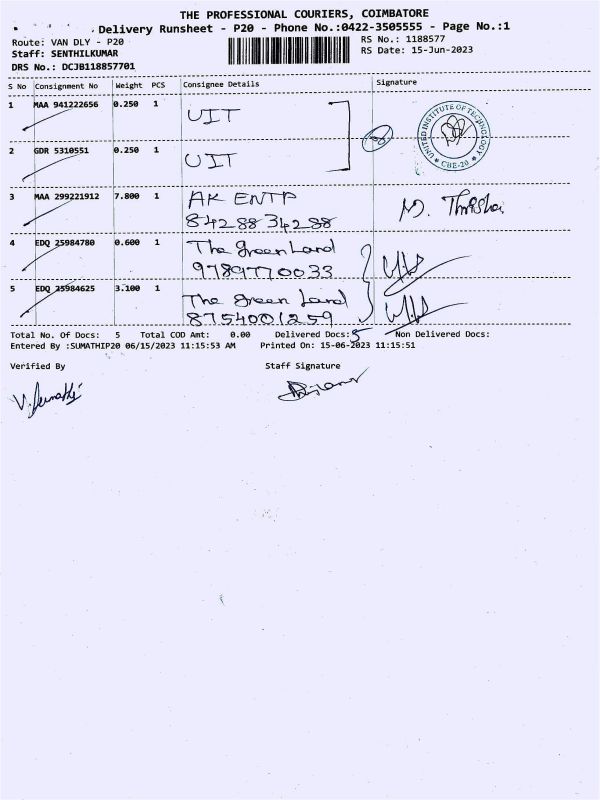 THE PROFESSIONAL COURIERS, COIMBATORE
Delivery Runsheet - P20 - Phone No.:0422-3505555 - Page No.:1
Route: VAN DLY - P20
RS No.: 1188577
Staff: SENTHILKUMAR
RS Date: 15-Jun-2023
DRS No.: DCJB118857701
S No Consignment No Weight PCS Consignee Details Signature
1 MAA 941222656 0.250 1 UIT
UNITED INSTITUTE OF TECHNOLOGY
* CBE-20 *
2 GDR 5310551 0.250 1 UIT
3 MAA 299221912 7.800 1 AK ENTP
8428834288
4 EDQ 25984780 0.600 1 The green Land
9789770033
5 EDQ 25984625 3.100 1 The green Land
8754001259
Total No. Of Docs: 5 Total COD Amt: 0.00 Delivered Docs: 5 Non Delivered Docs:
Entered By :SUMATHIP20 06/15/2023 11:15:53 AM Printed On: 15-06-2023 11:15:51
Verified By Staff Signature